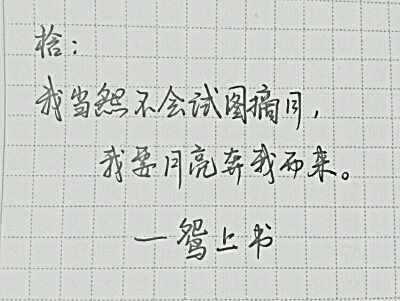 拾：
我当然不会试图摘月，
我要月亮奔我而来。
一鸳上书